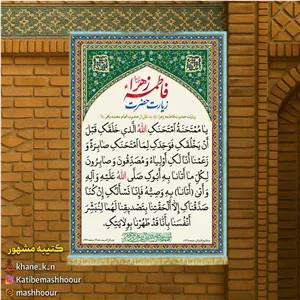 فاطمه زهرا
زیارت حضرت
یا مُمْتَحَنَةُ امْتَحَنَکِ اللهُ الَّذی خَلَقَکِ قَبْلَ
أَنْ یَخْلُقَکِ فَوَجَدَکِ لِمَا امْتَحَنَکِ صابِرَةً وَ
زَعَمْنا أَنّا لَکِ أَوْلِیاءُ وَ مُصَدِّقُونَ وَ صابِرُونَ
لِکُلِّ ما أَتانا بِهِ أَبُوکِ صَلَّی اللهُ عَلَیْهِ وَ آلِهِ
وَ أَتیٰ (أَتانا) بِهِ وَصِیُّهُ فَإِنّا نَسْأَلُکِ إِنْ کُنّا
صَدَّقْناکِ إِلّا أَلْحَقْتِنا بِتَصْدیقِنا لَهُما لِنُبَشِّرَ
أَنْفُسَنا بِأَنّا قَدْ طَهُرْنا بِوِلایَتِکِ.
کتیبه مشهور
khane.k.n
Katibemashhoour
mashhoour